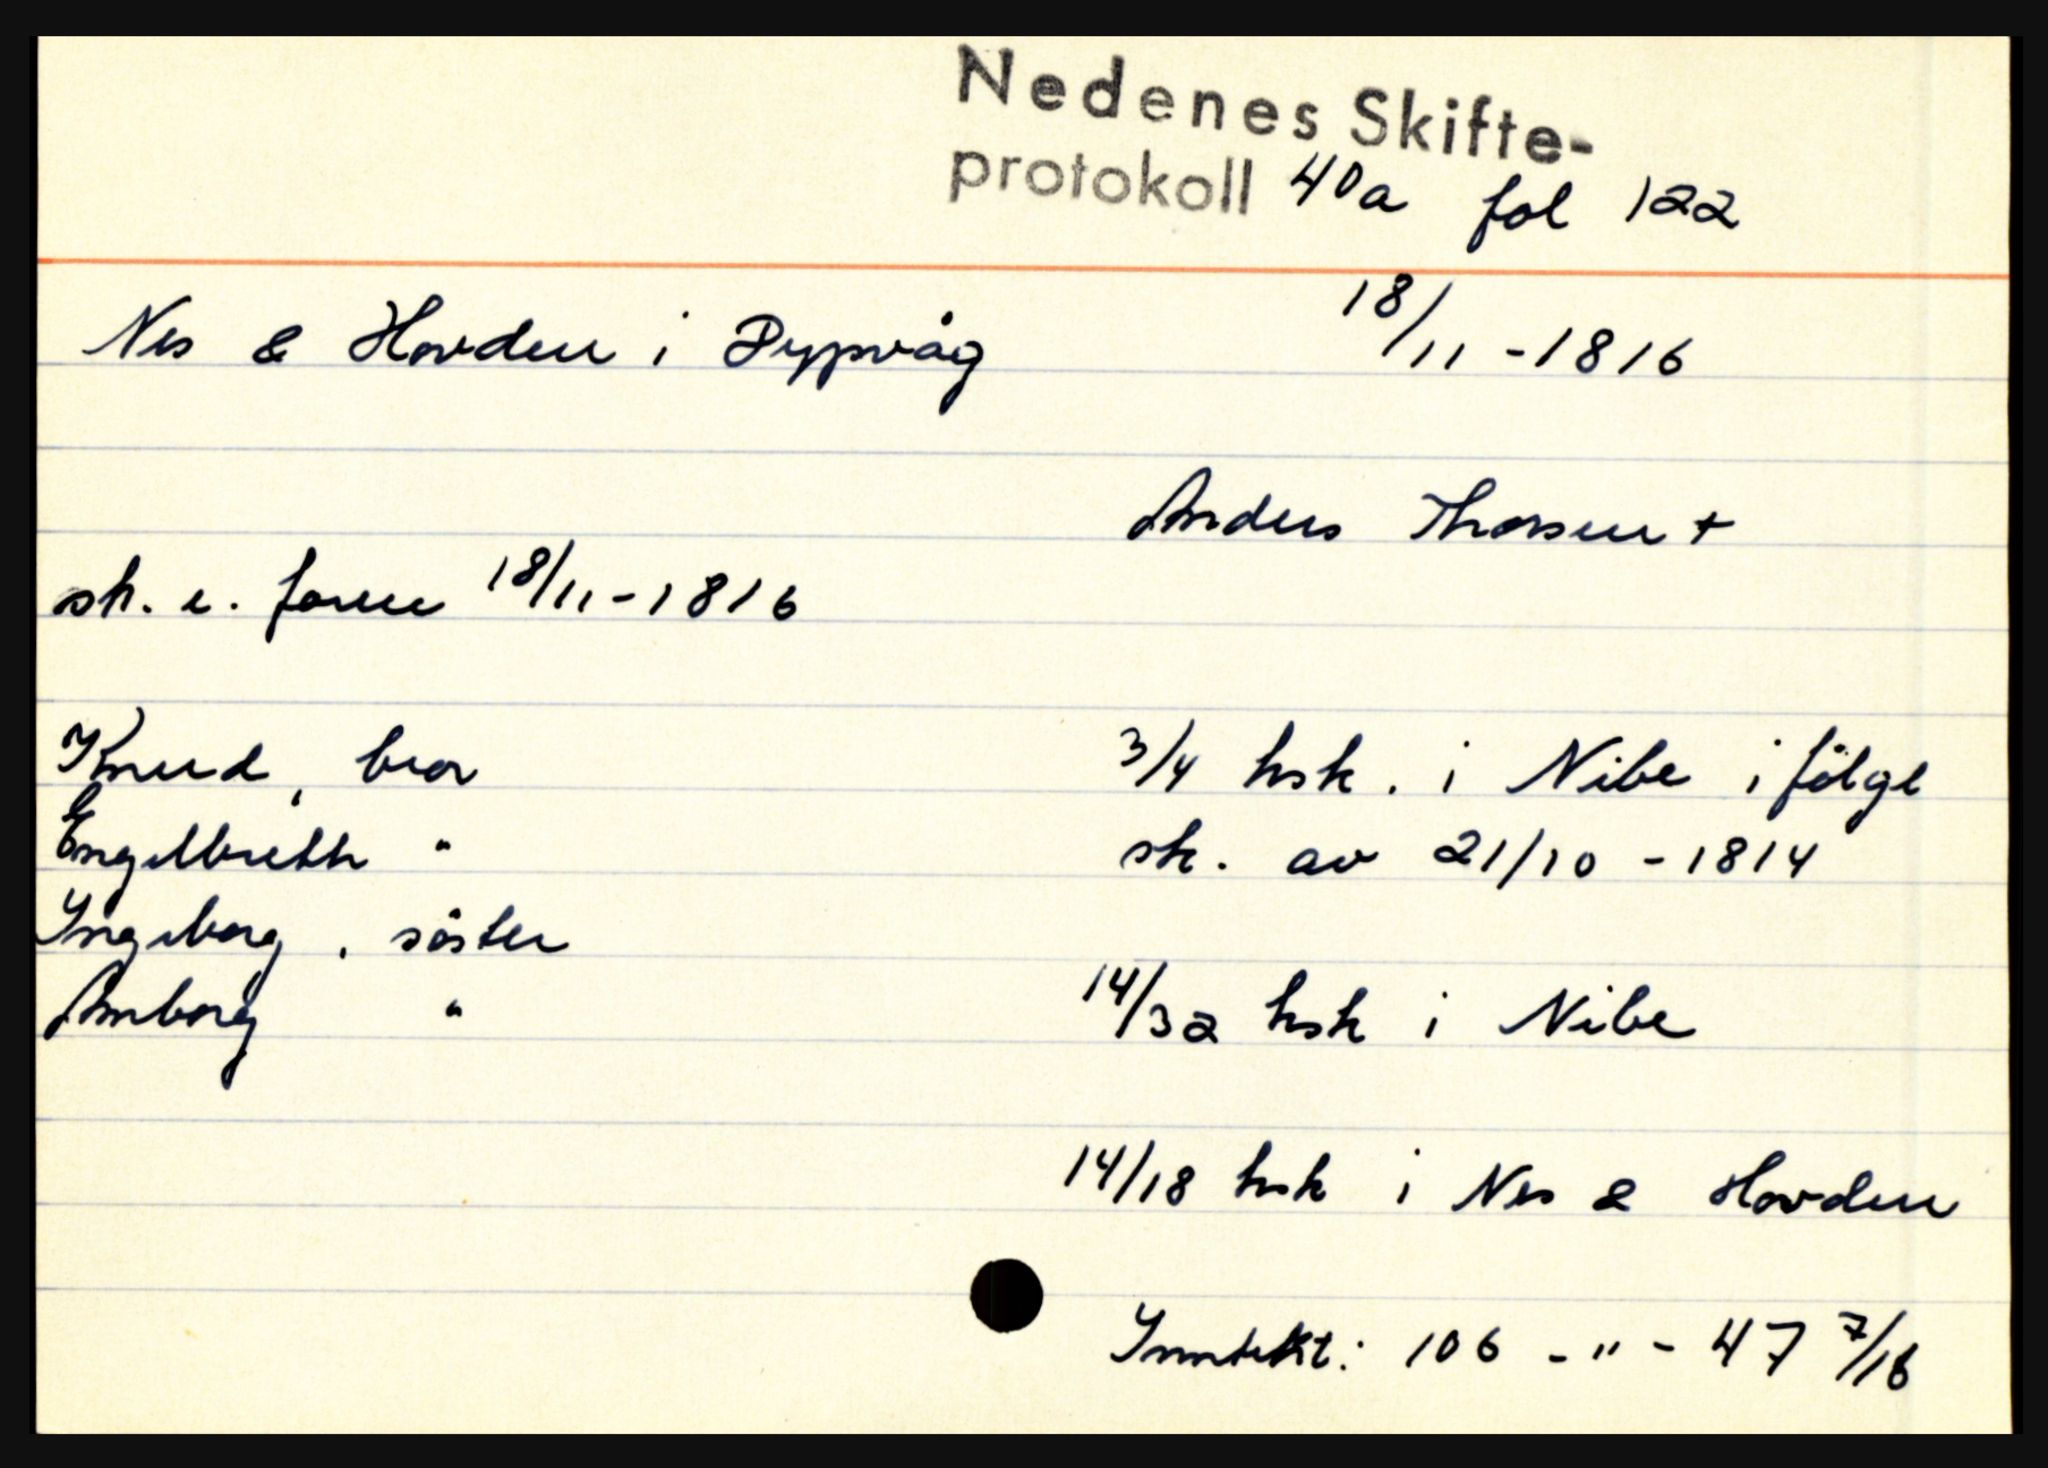 Nedenes Skifte-
protokoll 40a fol 122
Nes & Hovden i Dypvåg 18/11 - 1816
Anders Thorsen +
sk. e. faren 18/11 - 1816
Knud, bror 3/4 hsk. i Nibe i følge
Engelbreth " sk. av 21/10 - 1814
Ingeborg, søster
Amborg " 14/32 hsk i Nibe
14/18 hsk i Nes & Hovden
Inntekt: 106 - " - 47 7/16